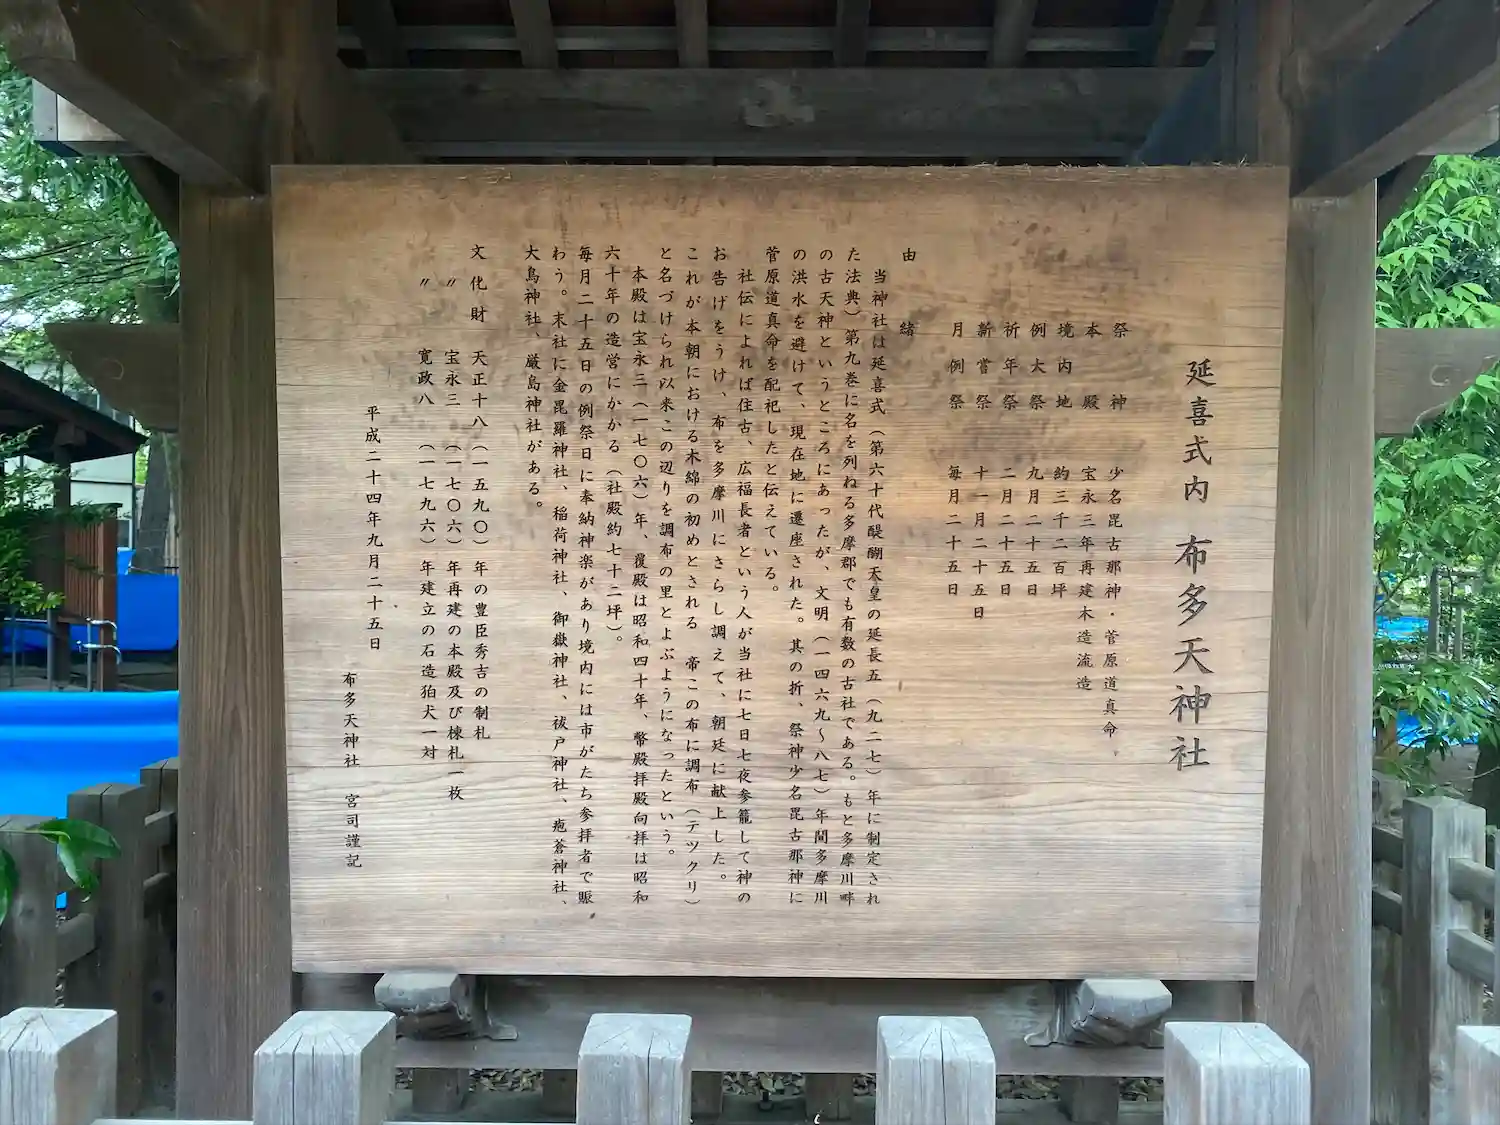 延喜式内 布多天神社
祭神 少名毘古那神・菅原道真命
本殿 宝永三年再建木造流造
境内地 約三千二百坪
例大祭 九月二十五日
祈年祭 二月二十五日
新嘗祭 十一月二十五日
月例祭 毎月二十五日
由緒
当神社は延喜式（第六十代醍醐天皇の延長五（九二七）年に制定され
た法典）第九巻に名を列ねる多摩郡でも有数の古社である。もと多摩川畔
の古天神というところにあったが、文明（一四六九～八七）年間多摩川
の洪水を避けて、現在地に遷座された。其の折、祭神少名毘古那神に
菅原道真命を配祀したと伝えている。
社伝によれば往古、広福長者という人が当社に七日七夜参籠して神の
お告げをうけ、布を多摩川にさらし調えて、朝廷に献上した。
これが本朝における木綿の初めとされる 帝この布に調布（テツクリ）
と名づけられ以来この辺りを調布の里とよぶようになったという。
本殿は宝永三（一七〇六）年、覆殿は昭和四十年、幣殿拝殿向拝は昭和
六十年の造営にかかる（社殿約七十二坪）。
毎月二十五日の例祭日に奉納神楽があり境内には市がたち参拝者で賑
わう。末社に金毘羅神社、稲荷神社、御嶽神社、祓戸神社、疱蒼神社、
大鳥神社、厳島神社がある。
文化財 天正十八（一五九〇）年の豊臣秀吉の制札
〃 宝永三（一七〇六）年再建の本殿及び棟札一枚
〃 寛政八（一七九六）年建立の石造狛犬一対
平成二十四年九月二十五日
布多天神社 宮司謹記